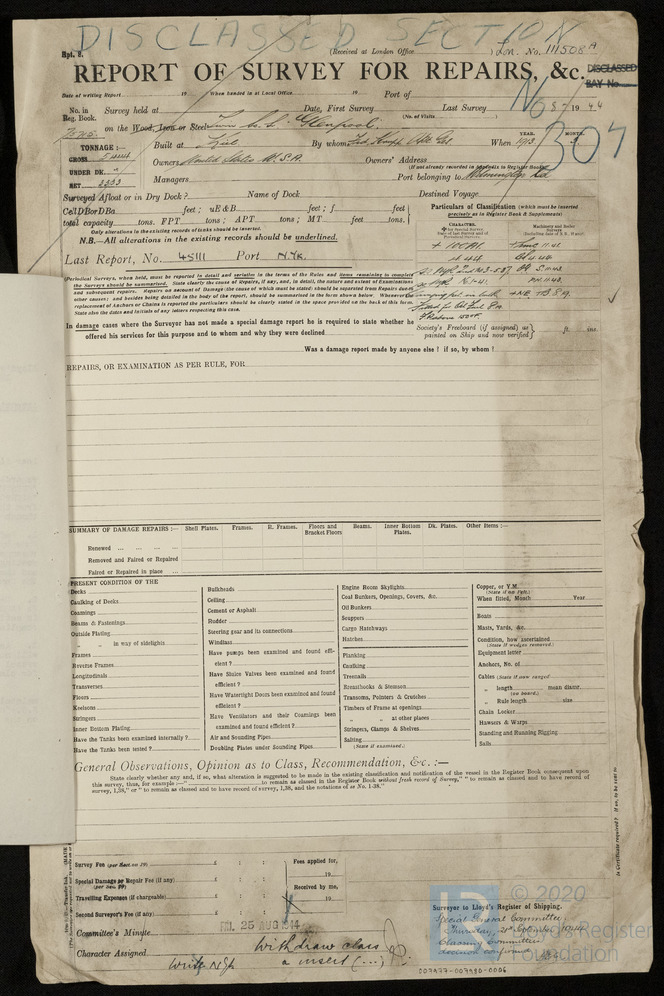 DISCLASSED SECTION
Rpt. 8.
(Received at London Office
) Lon. No. 111508 A
REPORT OF SURVEY FOR REPAIRS, &c.
DISCLASSED
BAY No
Date of writing Report 19 When handed in at Local Office 19 Port of
No. in Reg. Book. Survey held at Date, First Survey Last Survey 19 44
(No. of Visits )
on the Wood, Iron or Steel Twin Sc. S. Glenpool
YEAR. MONTH.
TONNAGE:— Built at Kiel By whom When 1913
307
GROSS
Owners Owners' Address
(If not already recorded in Appendix to Register Book)
UNDER DK.
NET 3333
Managers Port belonging to Wilmington
Surveyed Afloat or in Dry Dock? Name of Dock Destined Voyage
Cell D B or D Ba feet; uE & B feet; f feet
total capacity tons. FPT tons; APT tons; MT feet tons.
Only alterations in the existing records of tanks should be inserted.
N.B.—All alterations in the existing records should be underlined.
Particulars of Classification (which must be inserted
precisely as in Register Book & Supplements)
CHARACTER.
Machinery and Boiler
Surveys
Last Report, No. 45111 Port N.Yk.
(Periodical Surveys, when held, must be reported in detail and seriatim in terms of the Rules and items remaining to complete
the Surveys should be summarised. State clearly the cause of Repairs, if any, and, in detail, the nature and extent of Examinations
and subsequent repairs. Repairs on account of Damage (the cause of which must be stated) should be separated from Repairs due to
other causes; and besides being detailed in the body of the report, should be summarised in the form shown below. Whenever
replacement of Anchors or Chains is reported the particulars should be clearly stated in the space provided on the back of this form.
State also the dates and initials of any letters respecting this case.
In damage cases where the Surveyor has not made a special damage report he is required to state whether he
offered his services for this purpose and to whom and why they were declined
Society's Freeboard (if assigned) as
painted on Ship and now verified
ft. ins.
Was a damage report made by anyone else? if so, by whom?
REPAIRS, OR EXAMINATION AS PER RULE, FOR
SUMMARY OF DAMAGE REPAIRS:— Shell Plates. Frames. R. Frames. Floors and Bracket Floors Beams. Inner Bottom Plates. Dk. Plates. Other Items:—
Renewed
Removed and Faired or Repaired
Faired or Repaired in place
PRESENT CONDITION OF THE
Decks
Caulking of Decks
Coamings
Beams & Fastenings
Outside Plating
" " in way of sidelights
Frames
Reverse Frames
Longitudinals
Transverses
Floors
Keelsons
Stringers
Inner Bottom Plating
Have the Tanks been examined internally?
Have the Tanks been tested?
Bulkheads
Ceiling
Cement or Asphalt
Rudder
Steering gear and its connections
Windlass
Have pumps been examined and found effi-
cient?
Have Sluice Valves been examined and found
efficient?
Have Watertight Doors been examined and found
efficient?
Have Ventilators and their Coamings been
examined and found efficient?
Air and Sounding Pipes
Doubling Plates under Sounding Pipes
Engine Room Skylights
Coal Bunkers, Openings, Covers, &c.
Oil Bunkers
Scuppers
Cargo Hatchways
Hatches
Planking
Caulking
Treenails
Breasthooks & Stemson
Transoms, Pointers & Crutches
Timbers of Frame at openings
" " at other places
Stringers, Clamps & Shelves
Salting
(State if examined.)
Copper, or Y.M.
(State if on Felt.)
When fitted, Month Year
Boats
Masts, Yards, &c.
Condition, how ascertained
(State if wedges removed.)
Equipment letter
Anchors, No. of
Cables (State if now ranged
" length mean diamr.
(on board.)
" Rule length size
Chain Locker
Hawsers & Warps
Standing and Running Rigging
Sails
General Observations, Opinion as to Class, Recommendation, &c.:—
State clearly whether any and, if so, what alteration is suggested to be made in the existing classification and notification of the vessel in the Register Book consequent upon
this survey, thus, for example:—" to remain as classed in the Register Book without fresh record of Survey," " to remain as classed and to have record of
survey, 1,38," or " to remain as classed and to have record of survey, 1,38, and the notations of ss No. 1-38."
Survey Fee (per Section 29) £ : :
Special Damage or Repair Fee (if any) £ : :
(per Sec. 29)
Travelling Expenses (if chargeable) £ : :
Second Surveyor's Fee (if any) £ : :
Fees applied for,
19
Received by me,
19
Committee's Minute FRI. 25 AUG 1944
Character Assigned
Withdraw class
& insert (...)
Write N.Yk
Surveyor to Lloyd's Register of Shipping.
Special General Committee,
Thursday, 21st September, 1944
Classing Committee's
decision confirmed
© 2020
Lloyd's Register
Foundation
007977-007980-0006